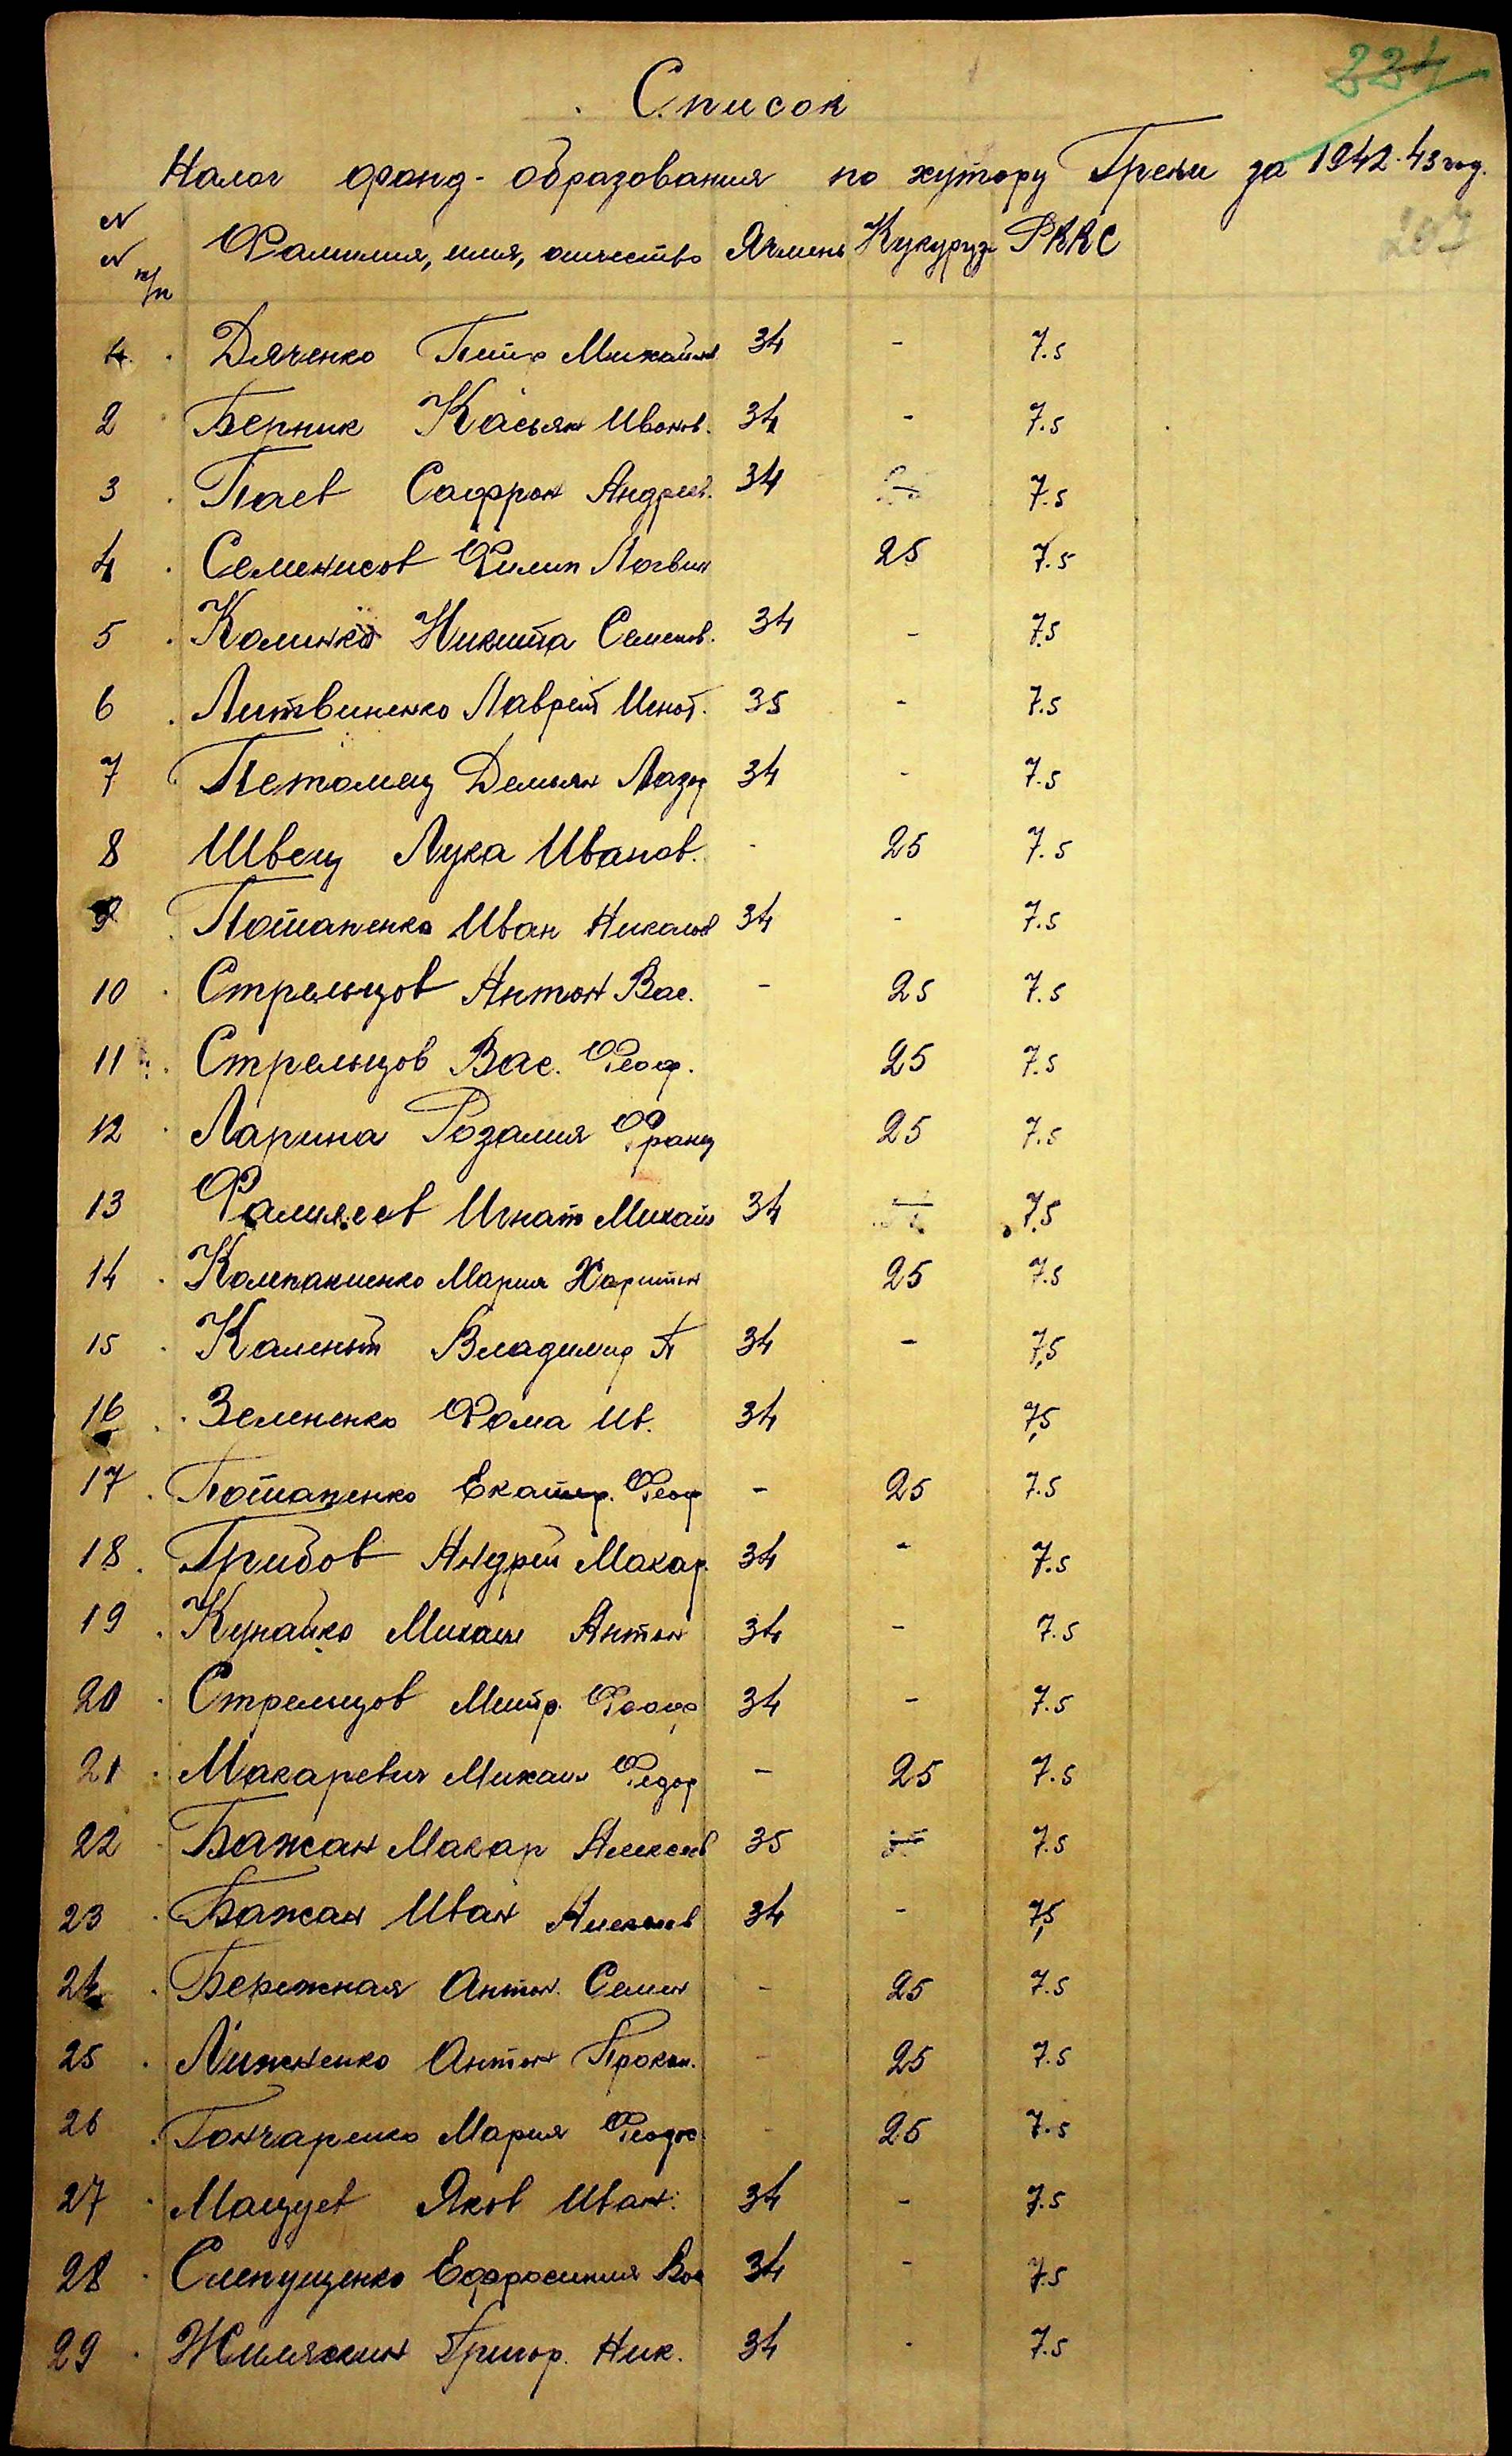 334
Список
Налог фонд-образования по хутору Греки за 1942-43 год.
203
N N п/п Фамилия, имя, отчество Ячмень Кукуруз РККС
1. Дяченко Петр Михайлов 34 - 7.5
2 Берник Касьян Иванов. 34 - 7.5
3 Паев Сафрон Андреев. 34 - 7.5
4 Семенисов Филип Логвин 25 7.5
5 Калинко Никита Семенов. 34 - 7.5
6 Литвиненко Лаврент Игнат. 35 - 7.5
7 Петомец Демьян Лазар 34 - 7.5
8 Швец Лука Иванов. - 25 7.5
9 Потапенко Иван Никалов 34 - 7.5
10 Стрельцов Антон Вас. - 25 7.5
11 Стрельцов Вас. Феод. 25 7.5
12 Ларина Розалия Франц 25 7.5
13 Фалилеев Игнат Михаил 34 - 7.5
14 Компаниенко Мария Харитон 25 7.5
15 Владимир П 34 - 7,5
16 Зелененко Фома Ив. 34 7,5
17 Потапенко Екатер. Феод - 25 7.5
18. Грибов Андрей Макар. 34 - 7.5
19 Кунайко Михаил Антон 34 - 7.5
20 Стрельцов Митр. Феод 34 - 7.5
21 Макаревич Михаил Федор - 25 7.5
22 Бажан Макар Алексеев 35 - 7.5
23 Бажан Иван Алексеев 34 - 7,5
24 Бережная Антон. Семен - 25 7.5
25 Лижненко Антон Прокоп. - 25 7.5
26 Гончаренко Мария Феодос - 25 7.5
27 Мацуев Яков Иван. 34 - 7.5
28 Слепущенко Ефросиния Вас 34 - 7.5
29 Жиляскин Григор. Ник. 34 - 7.5